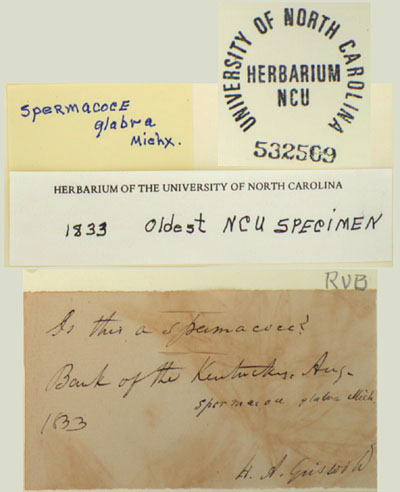 UNIVERSITY OF NORTH CAROLINA
HERBARIUM
NCU
532569
Spermacoce
glabra
Michx.
HERBARIUM OF THE UNIVERSITY OF NORTH CAROLINA
1833 Oldest NCU SPECIMEN
RVB
Is this a spermacoce?
Bank of the Kentucky. Aug.
spermacoce glabra Mich.
1833
H. A. Griswold